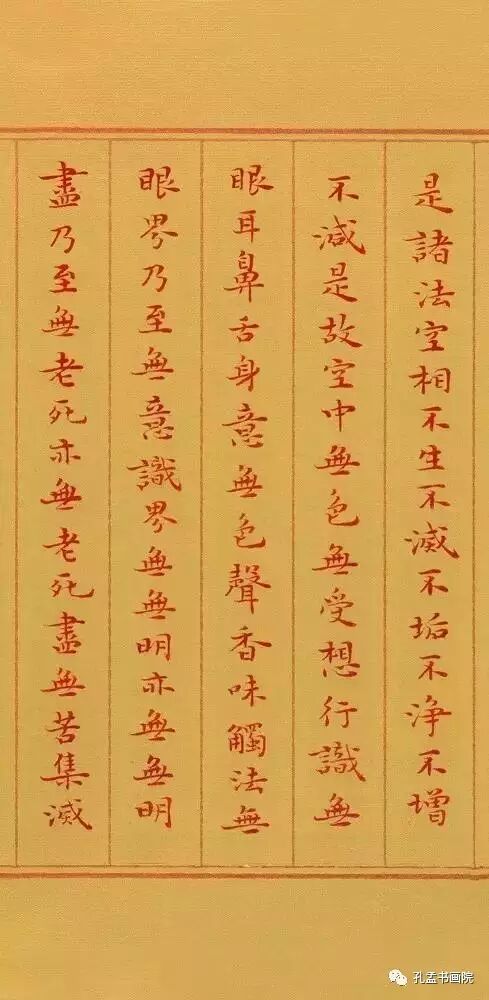 是諸法空相不生不滅不垢不浄不增
不減是故空中無色無受想行識無
眼耳鼻舌身意無色聲香味觸法無
眼界乃至無意識界無無明亦無無明
盡乃至無老死亦無老死盡無苦集滅
孔孟书画院